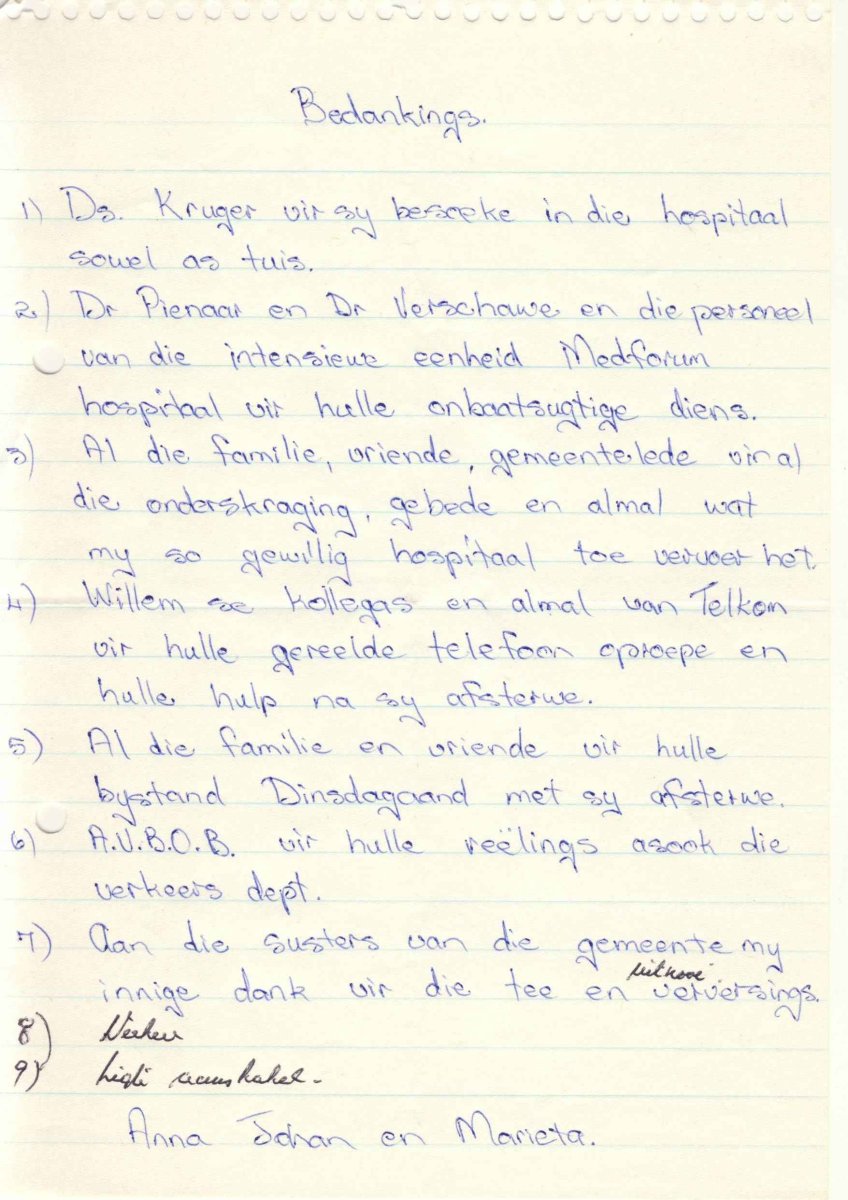 Bedankings.
1) Ds. Kruger vir sy besoeke in die hospitaal
sowel as tuis.
2) Dr Pienaar en Dr Verschawe en die personeel
van die intensiewe eenheid Medforum
hospitaal vir hulle onbaatsugtige diens.
3) Al die familie, vriende, gemeentelede vir al
die onderskraging, gebede en almal wat
my so gewillig hospitaal toe vervoer het.
4) Willem se kollegas en almal van Telkom
vir hulle gereelde telefoon oproepe en
hulle hulp na sy afsterwe.
5) Al die familie en vriende vir hulle
bystand Dinsdagaand met sy afsterwe.
6) A.V.B.O.B. vir hulle reëlings asook die
verkeers dept.
7) Aan die susters van die gemeente my
innige dank vir die tee en verversings.
8)
9)
Anna Johan en Marieta.